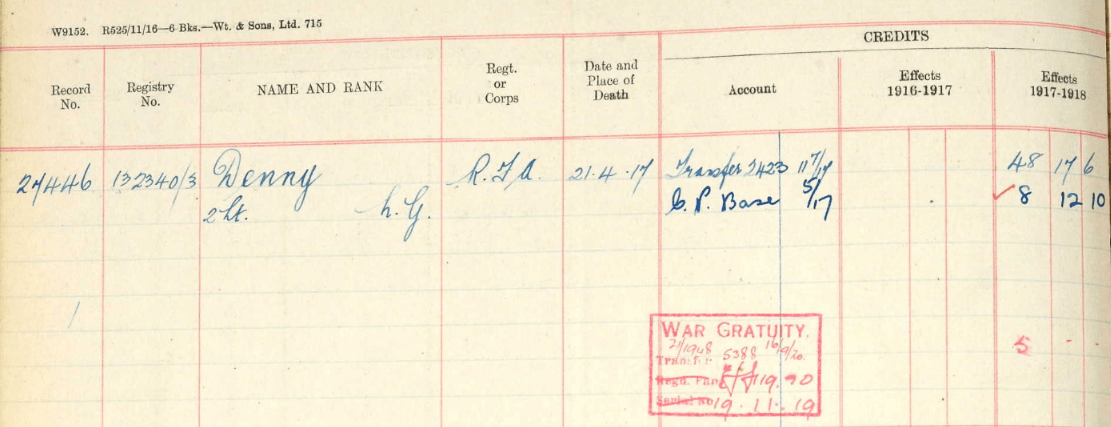 W9152. R525/11/16—6 Bks.—Wt. & Sons, Ltd. 715
CREDITS
Record No.
Registry No.
NAME AND RANK
Regt. or Corps
Date and Place of Death
Account
Effects 1916-1917
Effects 1917-1918
27446 132340/3 Denny R.F.A. 21.4.17 Transfer 2423 48 17 6
2Lt. h.G. C.P. Base 5/17 8 12 10
WAR GRATUITY.
5
Transfer 5388 16/9/20
Regd.
Serial No 19.11.19